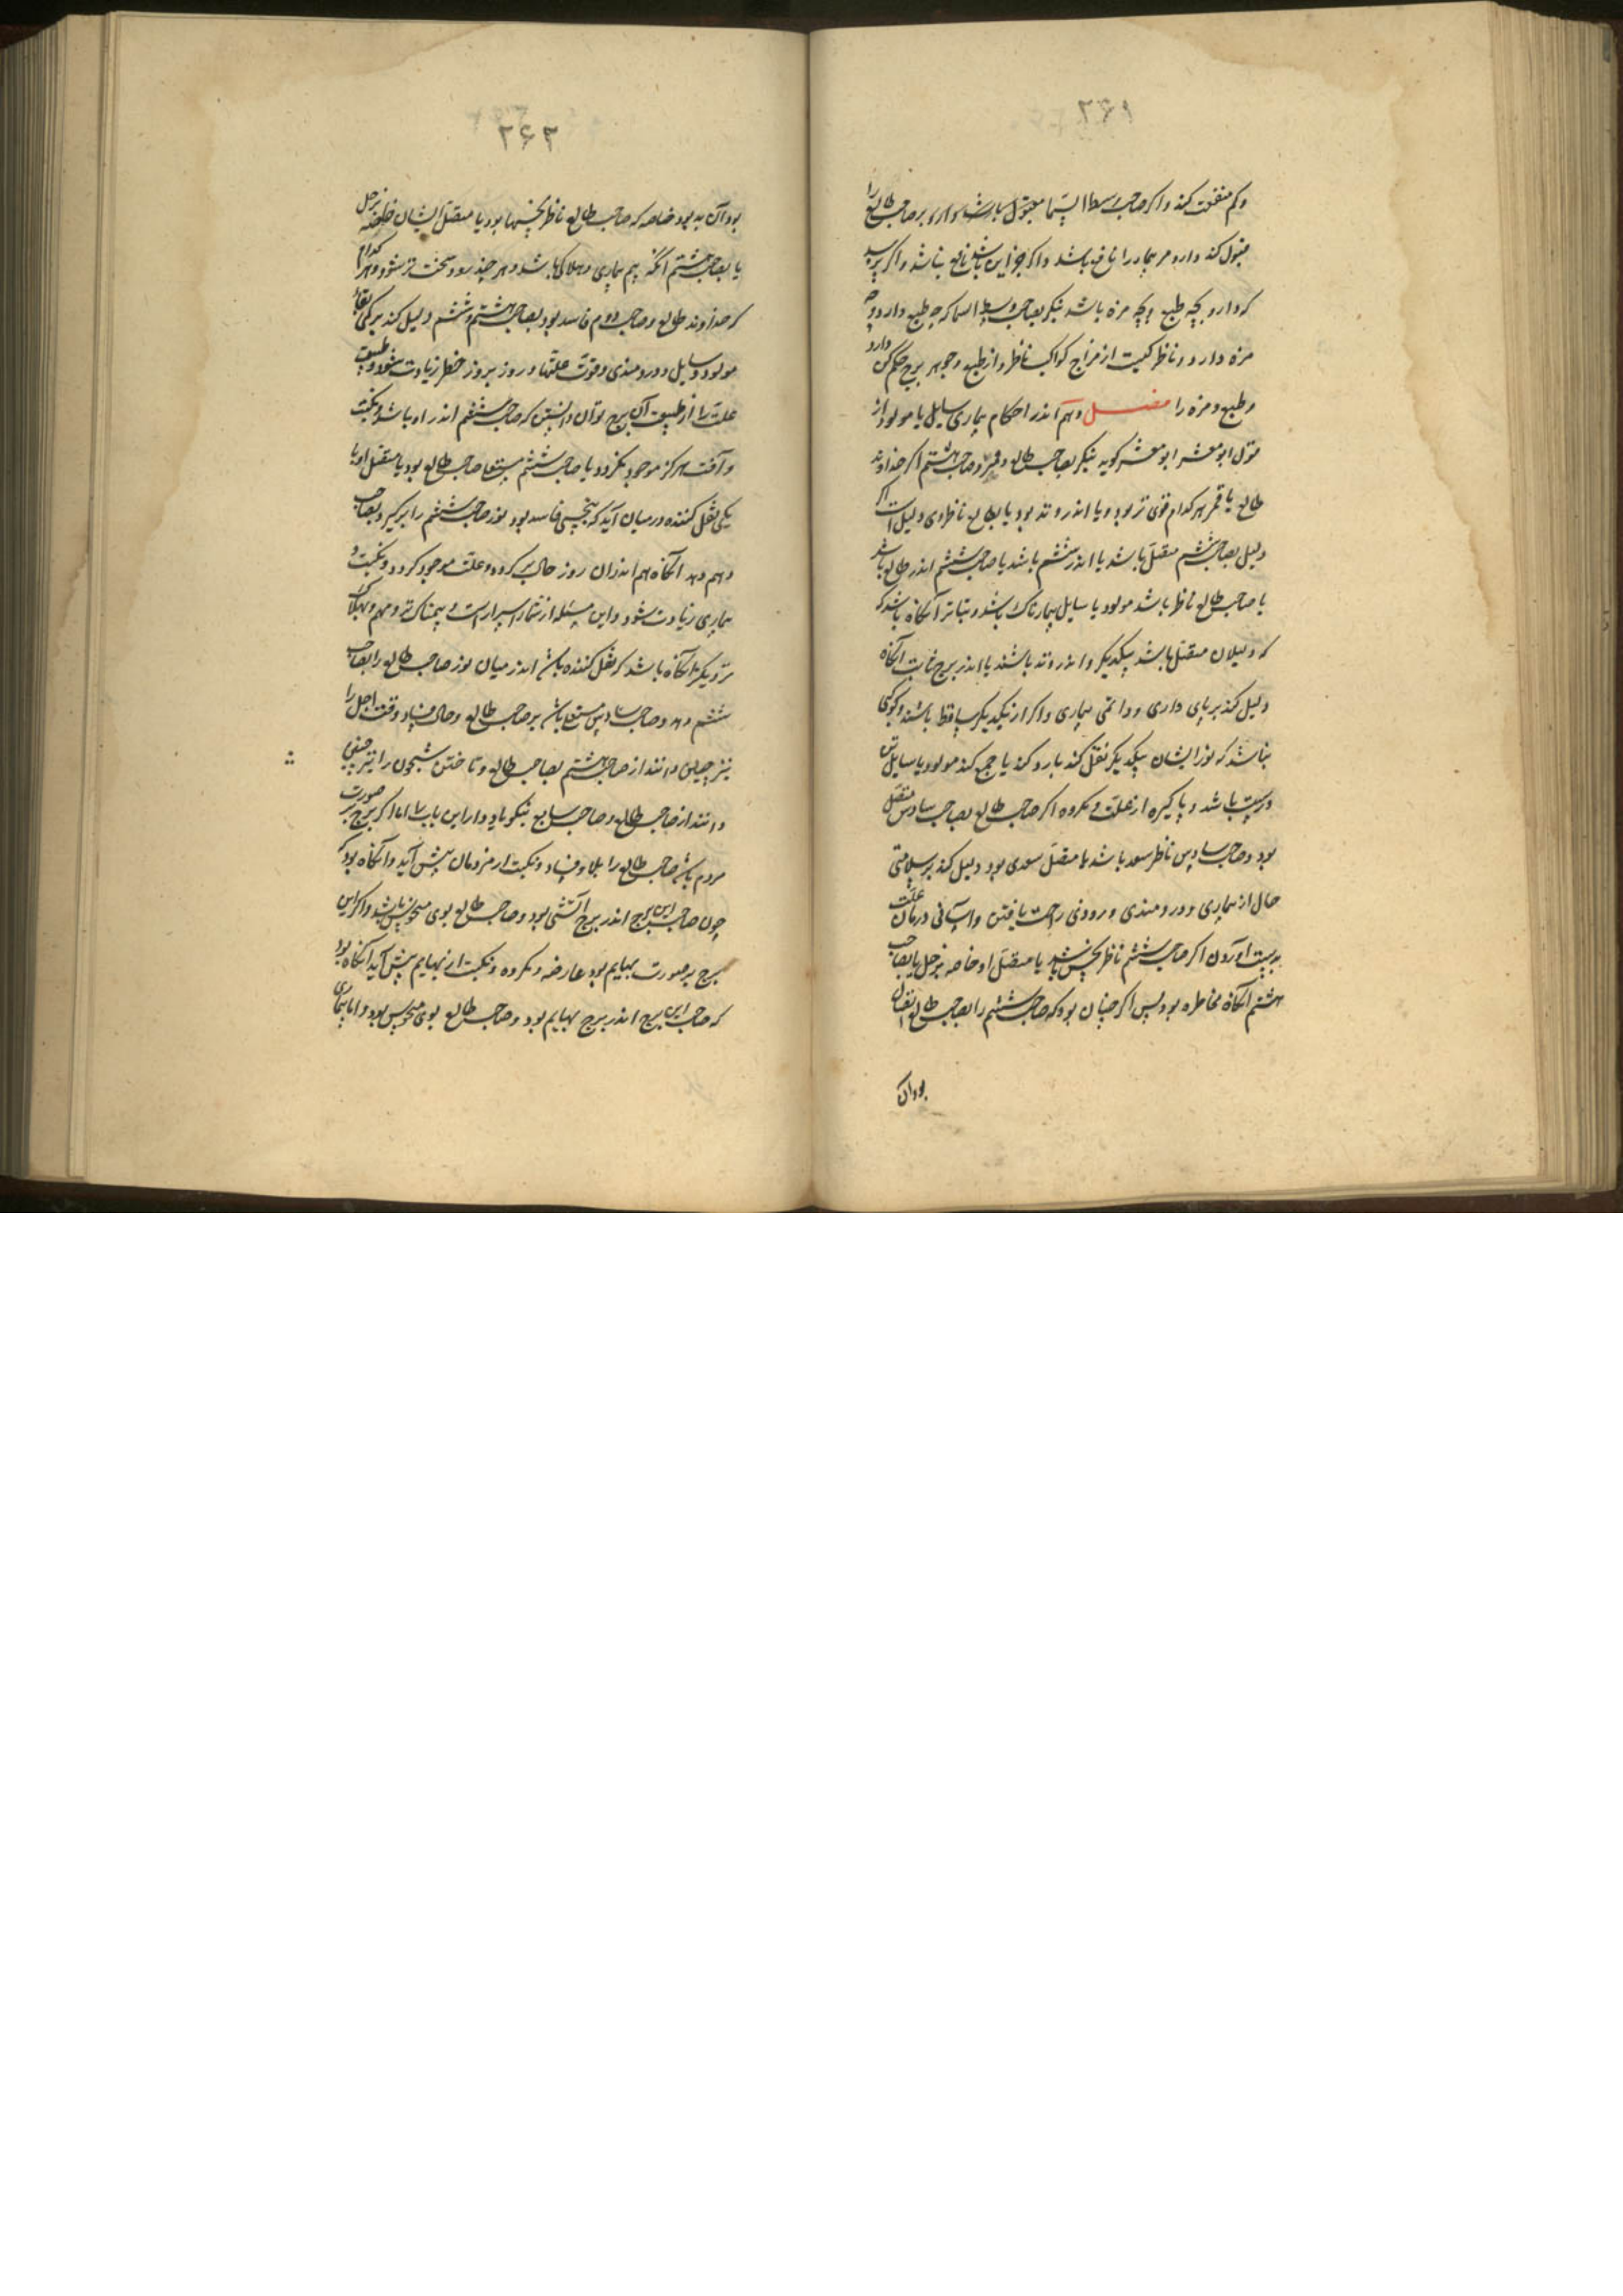 ۲۶۱
وکم منفعت کند و اکر صاحب وسط السما مقبول باشد و او بر صاحب طالع را
قبول کند دارو مر بیمار را نافع باشد و اکر جز این باشد نافع نباشد و اکر پرسد
که دارو بچه طبع و بچه مزه باشد بنکر بصاحب وسط السما که چه طبع دارد و چه
مزه دارد و ناظر کیست از مزاج کواکب ناظر و از طبع و جوهر برج حکم کن دارو
و طبع و مزه را فصل دهم اندر احکام بیماری سایل یا مولود از
قول ابو معشر ابو معشر کوید بنکر بصاحب طالع و قمر و صاحب هشتم اکر خداوند
طالع یا قمر هر کدام قوی تر بود و یا اندر وتد بود یا بطالع ناظر وی دلیل است اکر
دلیل بصاحب ششم متصل باشد یا اندر ششم باشد یا صاحب ششم اندر طالع باشد
یا صاحب طالع ناظر باشد مولود یا سایل بیمارناک باشد و بتاتر آنکاه باشد که
که دلیلان متصل باشد بیکدیکر و اندر وتد باشند یا اندر برج ثابت آنکاه
دلیل کند بر پای داری و دائمی بیماری و اکر از یکدیکر ساقط باشند و کوکبی
نباشد که نور ایشان بیکدیکر نقل کند یا رد کند یا جمع کند مولود یا سایل تن
درست باشد و پاکیزه از علت و مکروه اکر صاحب طالع بصاحب سادس متصل
بود و صاحب سادس ناظر سعد باشد یا متصل سعدی بود دلیل کند بر سلامتی
حال از بیماری و دردمندی و زودی راحت یافتن و آسانی درمان علت
بدست آوردن اکر صاحب ششم ناظر نحس باشد یا متصل او خاصه بزحل یا بصاحب
هشتم آنکاه مخاطره بود پس اکر چنان بود که صاحب ششم را بصاحب طالع اتصال
بود آن
۲۶۲
بود آن بد بود خاصه که صاحب طالع ناظر نحسها بود یا متصل ایشان خاصه بزحل
یا بصاحب هشتم آنکه بیم بیماری و هلاکی باشد و هر چند رود سخت تر شود و هر کدام
که خداوند طالع و صاحب دوم فاسد بود بصاحب هشتم و ششم دلیل کند بر کمی بقاء
مولود و سایل و دردمندی و قوت علتها و روز بروز خطر زیادت شود و طبیعت
علت را از طبیعت آن برج توان دانستن که صاحب ششم اندر او باشد و نکبت
و آفت هرکز موجود نکردد یا صاحب ششم مستعلی صاحب طالع بود یا متصل او یا
یکی نقل کننده در میان آید که بنحسی فاسد بود نور صاحب ششم را برکیرد و بصاحب
دهم دهد آنکاه هم اندران روز حال بر کردد و علت موجود کردد و نکبت و
بیماری زیادت شود و این مسئله از شمار اسرار است و بیمناک تر و مهم و بهلاک
نزدیکتر آنکاه باشد که نقل کننده باشد اندر میان نور صاحب طالع را بصاحب
ششم دهد و صاحب سادس مستعلی باشد بر صاحب طالع و حال فساد وقت اجل را
نیز چنین دانند از صاحب هشتم بصاحب طالع و تاختن شبیخون را نیز چنین
دانند از صاحب طالع و صاحب سابع نیکو یاد دار این باب را اما اکر برج بر صورت
مردم باشد صاحب طالع را بلا و فساد و نکبت از مردمان پیش آید و آنکاه بود که
چون صاحب این برج اندر برج آتشی بود و صاحب طالع بوی منحوس باشد و اکر این
برج بر صورت بهایم بود عارضه و مکروه و نکبت از بهایم پیش آید آنکاه بود
که صاحب این برج اندر برج بهایم بود و صاحب طالع بوی منحوس بود و اما بیماری